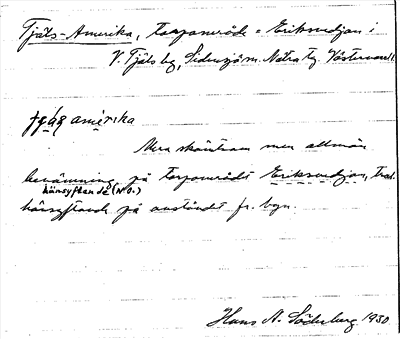 Tjäls-Amerika, torpområde = Eriksvedjan i
V. Tjäls by, Sidensjö sn. Nätra tg. Västernorrl.
amerika
Mera skämtsam men allmän
benämning på torpområdet Eriksvedjan, trol.
hänsyftande (N.O.)
hänsyftande på avståndet fr. byn.
Hans N. Söderberg 1930